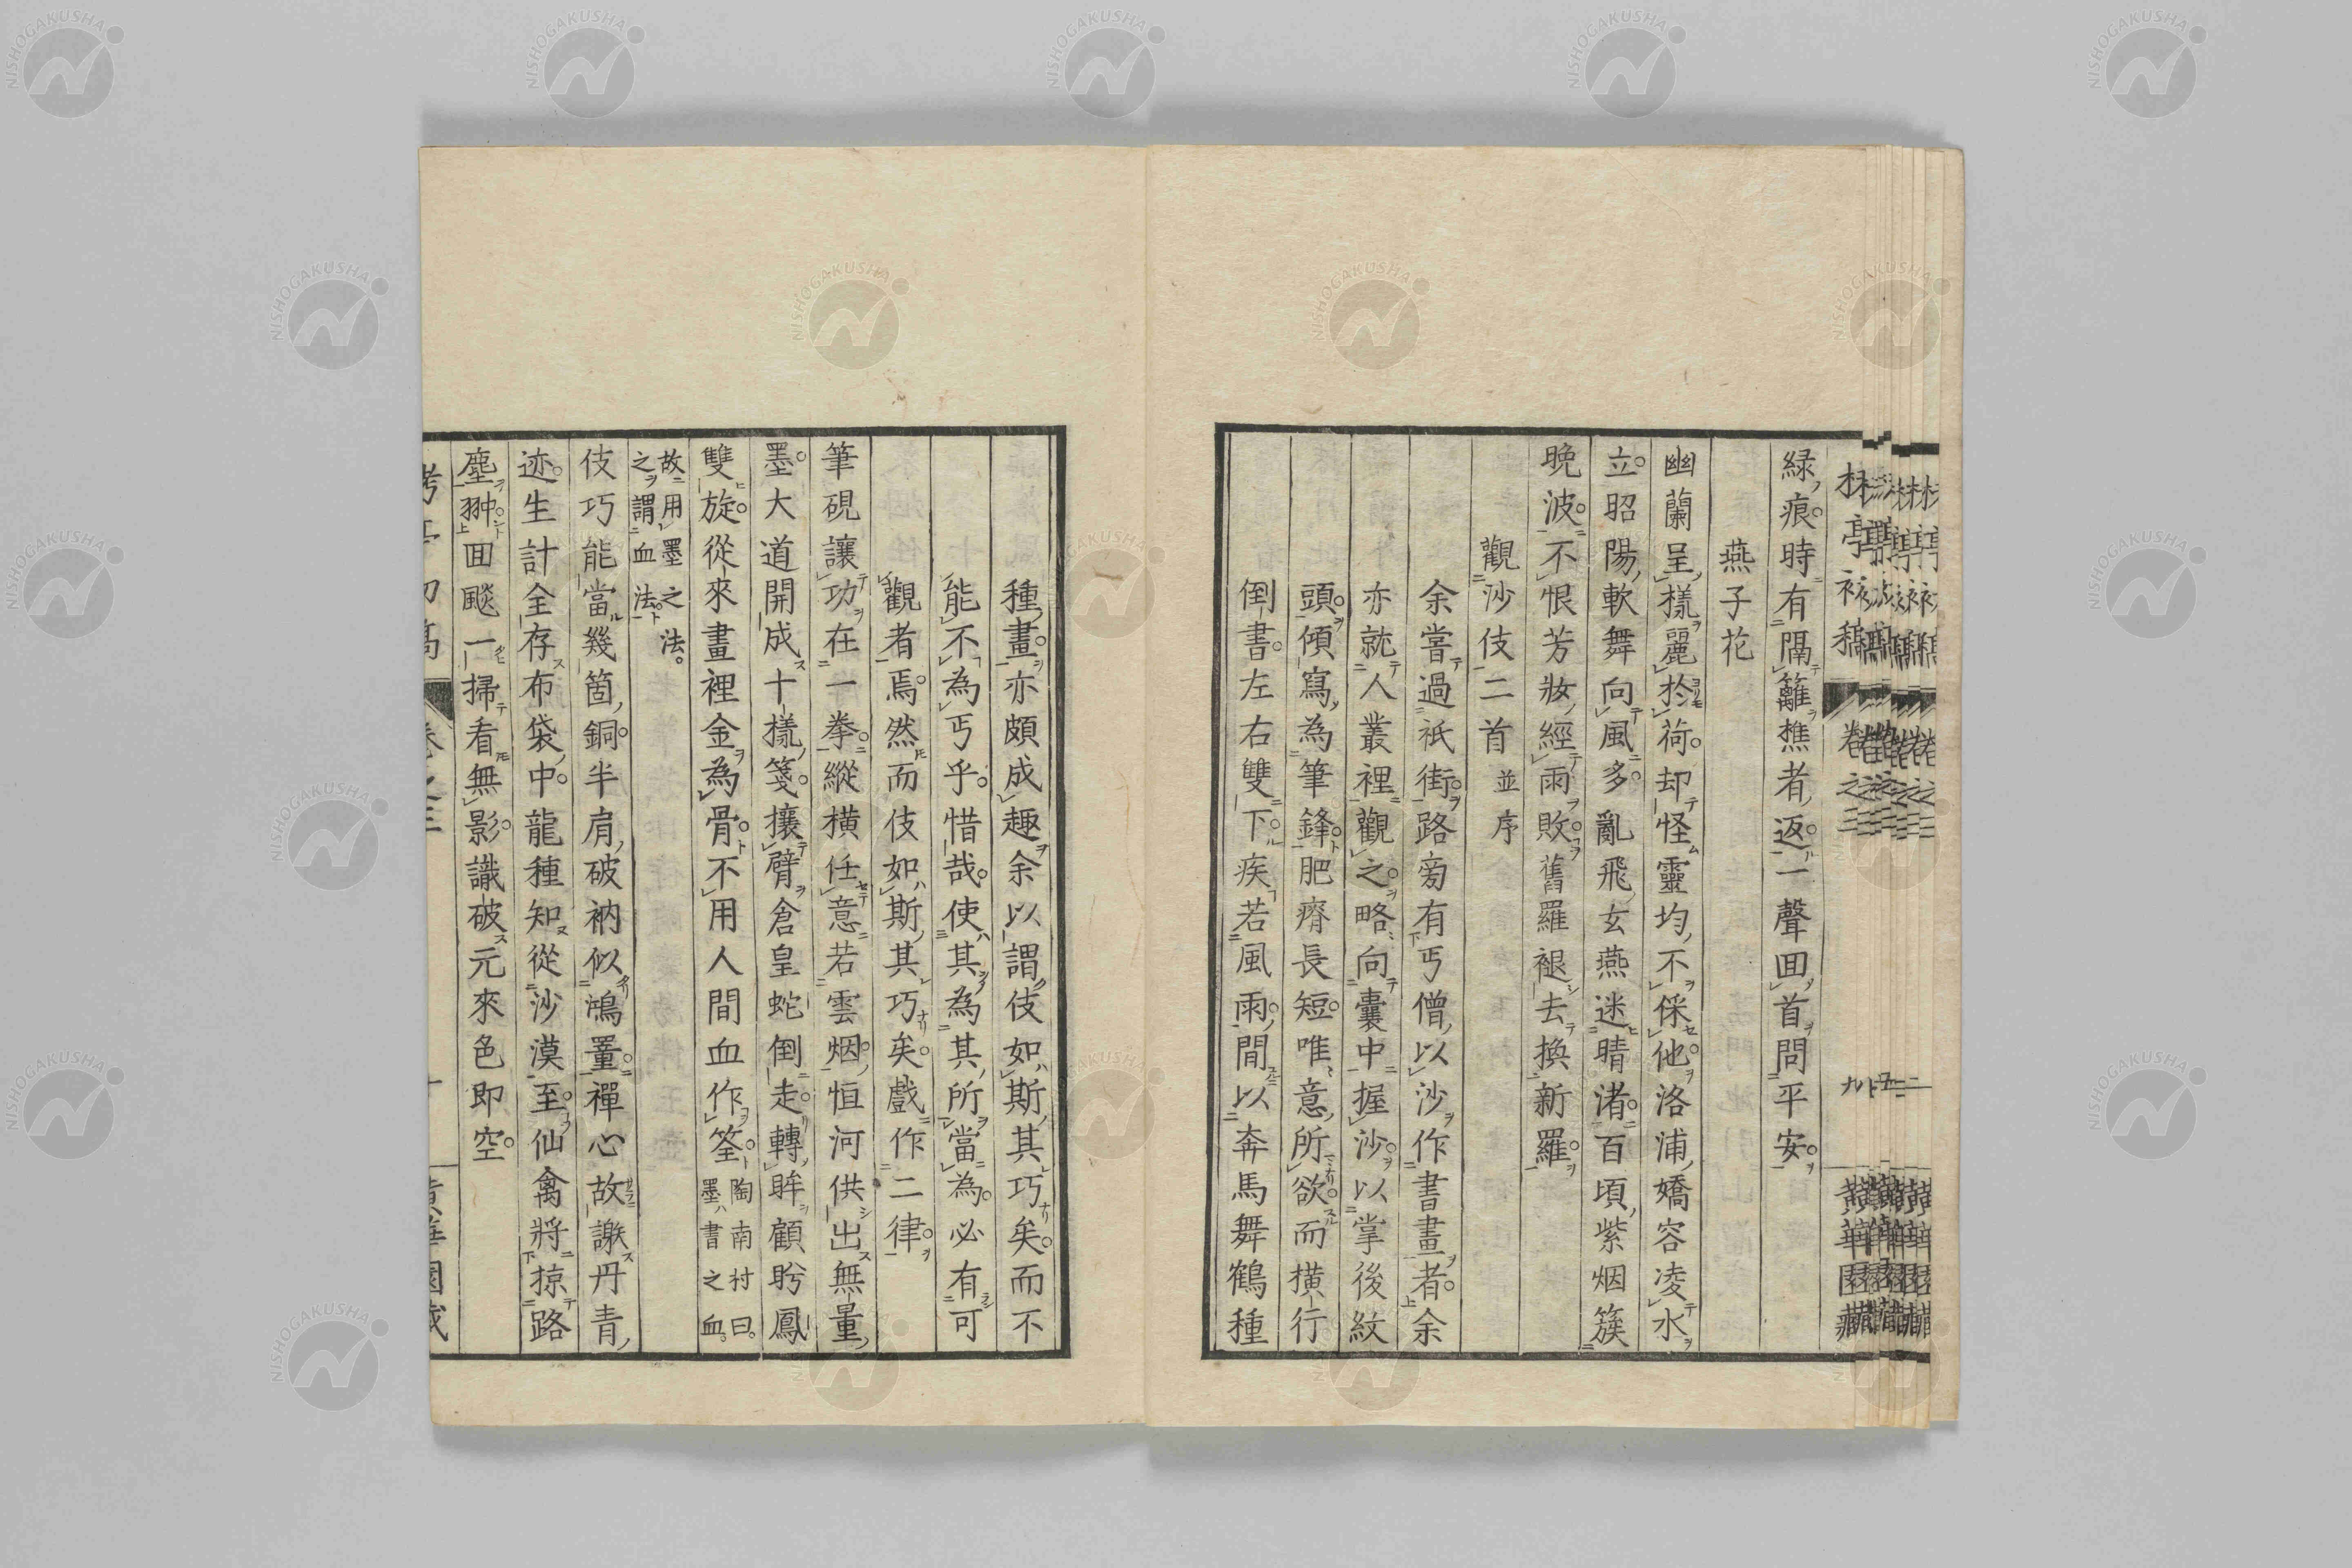 綠痕時有隔籬樵者返一聲回首問平安
燕子花
幽蘭呈樣麗於荷却怪靈均不倸他洛浦嬌容凌水
立昭陽軟舞向風多亂飛玄燕迷晴渚百頃紫烟簇
晚波不恨芳妝經雨敗舊羅褪去換新羅
觀沙伎二首並序
余嘗過祇街路旁有丐僧以沙作書畫者余
亦就人叢裡觀之略向囊中握沙以掌後紋
頭傾寫為筆鋒肥瘠長短唯意所欲而橫行
倒書左右雙下疾若風雨間以奔馬舞鶴種
種畫亦頗成趣余以謂伎如斯其巧矣而不
能不為丐乎惜哉使其為其所當為必有可
觀者焉然而伎如斯其巧矣戲作二律
筆硯讓功在一拳縱橫任意若雲烟恒河供出無量
墨大道開成十樣箋攘臂倉皇蛇倒走轉眸顧盻鳳
雙旋從來畫裡金為骨不用人間血作筌陶南村曰墨書之血
故用墨之法謂之血法
伎巧能當幾箇銅半肩破衲似鴻罿禪心故謝丹青
迹生計全存布袋中龍種知從沙漠至仙禽將掠路
塵翀回颷一掃看無影識破元來色即空
NISHOGAKUSHA